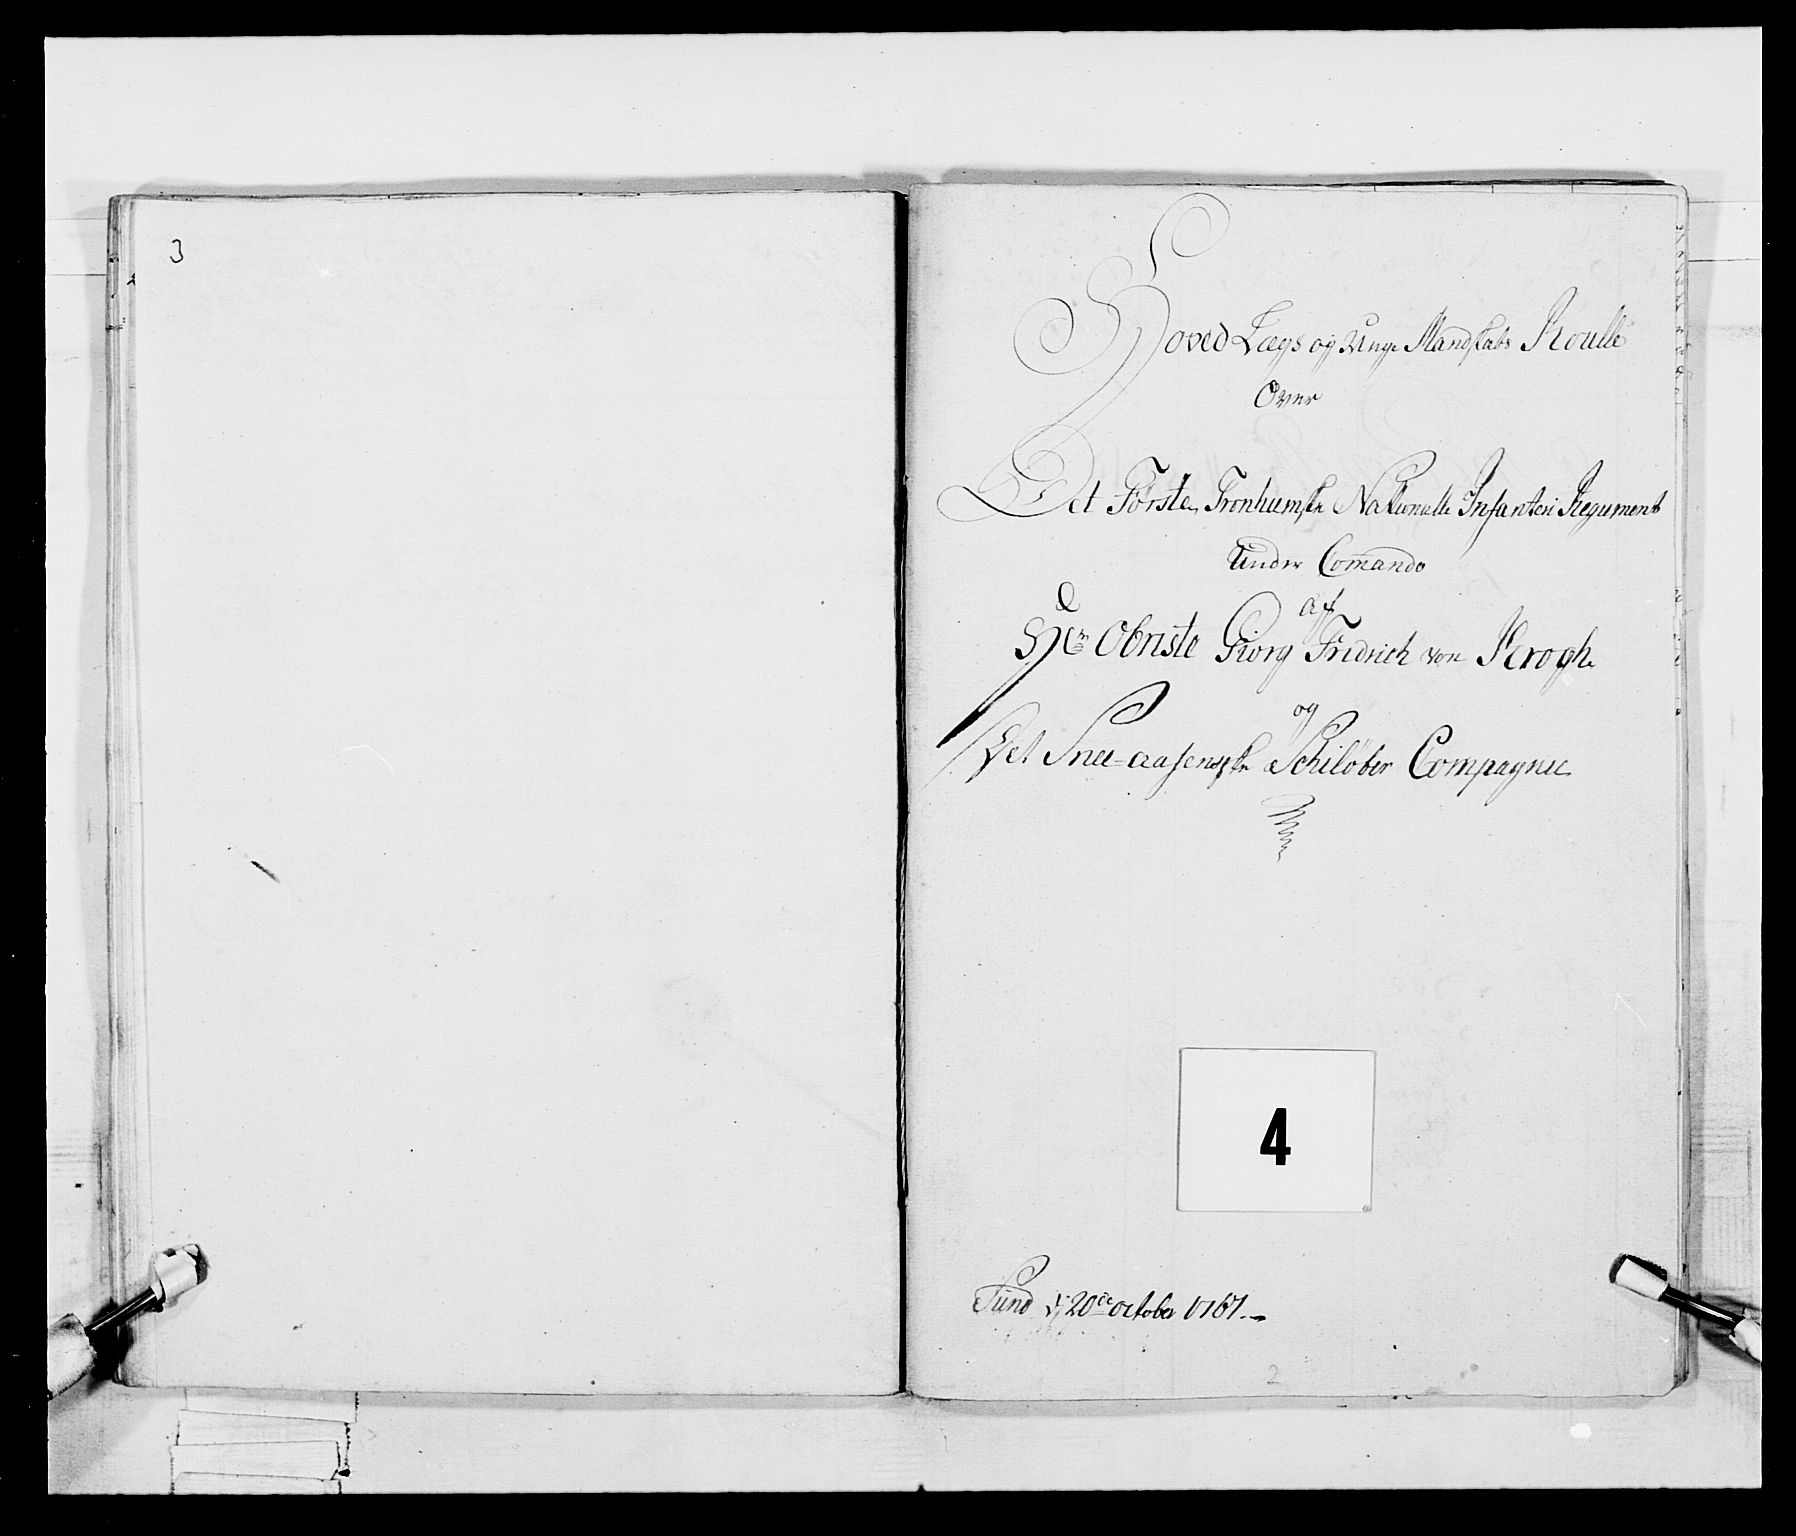 3
Hoved Lægs og Unge Mandskabs Roulle
Over
Det Förste Tronhiemske Nationalle Infanteri Regiment
Under Comando
af
Hr Obriste Giorg Fridrich von Krogh
og
Det Snee-aasenske Schilöber Compagnie
4
Sund d: 20de october 1767.
2